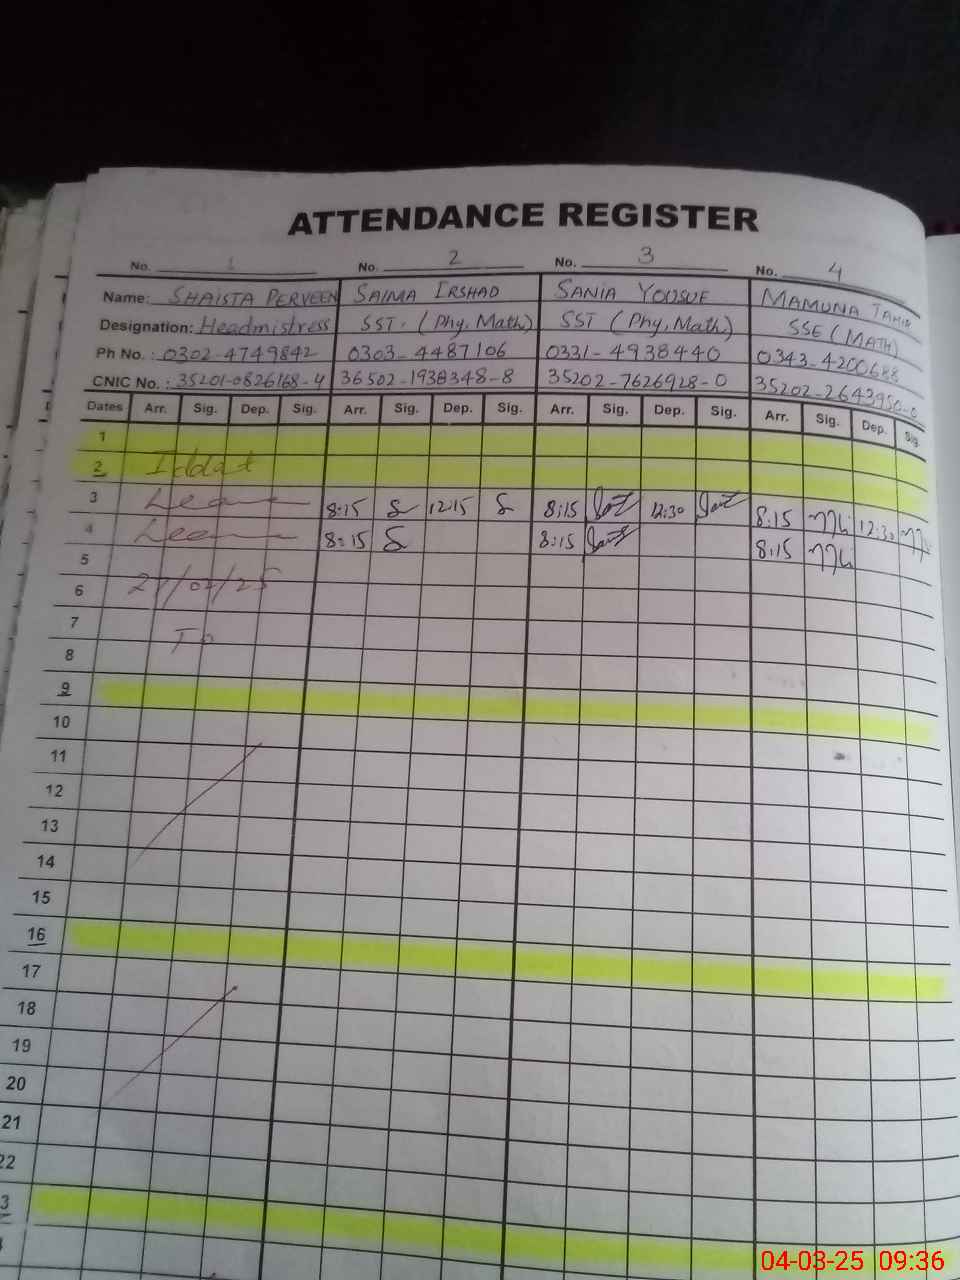 ATTENDANCE REGISTER
No. 1 No. 2 No. 3 No. 4
Name: SHAISTA PERVEEN SAIMA IRSHAD SANIA YOUSUF MAMUNA TAHIR
Designation: Headmistress SST. (Phy, Math) SST (Phy, Math) SSE (MATH)
Ph No. : 0302-4749842 0303-4487106 0331-4938440 0343-4200688
CNIC No. : 35201-0826168-4 36502-1938348-8 35202-7626928-0 35202-2643950-0
Dates Arr. Sig. Dep. Sig. Arr. Sig. Dep. Sig. Arr. Sig. Dep. Sig. Arr. Sig. Dep. Sig.
1
2 Iddat
3 Leave 8:15 12:15 8:15 12:30 8:15 12:30
4 Leave 8:15 8:15 8:15
5
6
7
8 To
9
10
11
12
13
14
15
16
17
18
19
20
21
22
3
04-03-25 09:36